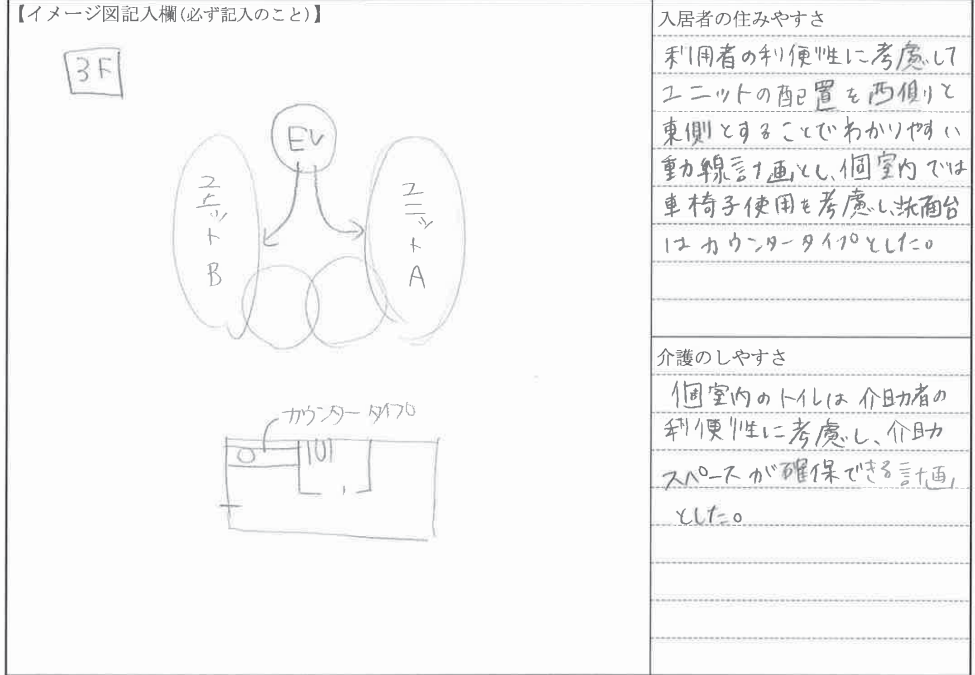 【イメージ図記入欄(必ず記入のこと)】
3F
EV
ユニットB
ユニットA
カウンタータイプ
入居者の住みやすさ
利用者の利便性に考慮して
ユニットの配置を西側と
東側とすることでわかりやすい
動線計画とし、個室内では
車椅子使用を考慮し、洗面台
はカウンタータイプとした。
介護のしやすさ
個室内のトイレは介助者の
利便性に考慮し、介助
スペースが確保できる計画
とした。